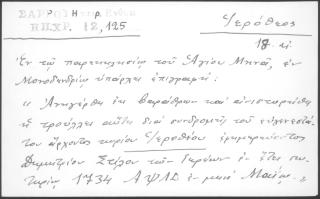 ΣΑΡΡΟΣ Ηπειρ.
ΗΠ.ΧΡ. 12, 125
Ἱερόθεος
18. αἰ.
Ἐν τῷ παρεκκλησίῳ τοῦ Ἁγίου Μηνᾶ, ἐν
Μονοδενδρίῳ ὑπάρχει ἐπιγραφή:
« Ἀνηγέρθη ἐκ βαράθρων καὶ ἀνιστορήθη
ὁ τρούλλος αὐτὸς διὰ συνδρομῆς τοῦ εὐγενεστά-
του ἄρχοντος κυρίου Ἱεροθέου
Δημητρίου τῶν ἐν ἔτει σω-
τηρίῳ 1734 ΑΨΛΔ ἐν μηνὶ Μαΐῳ. »